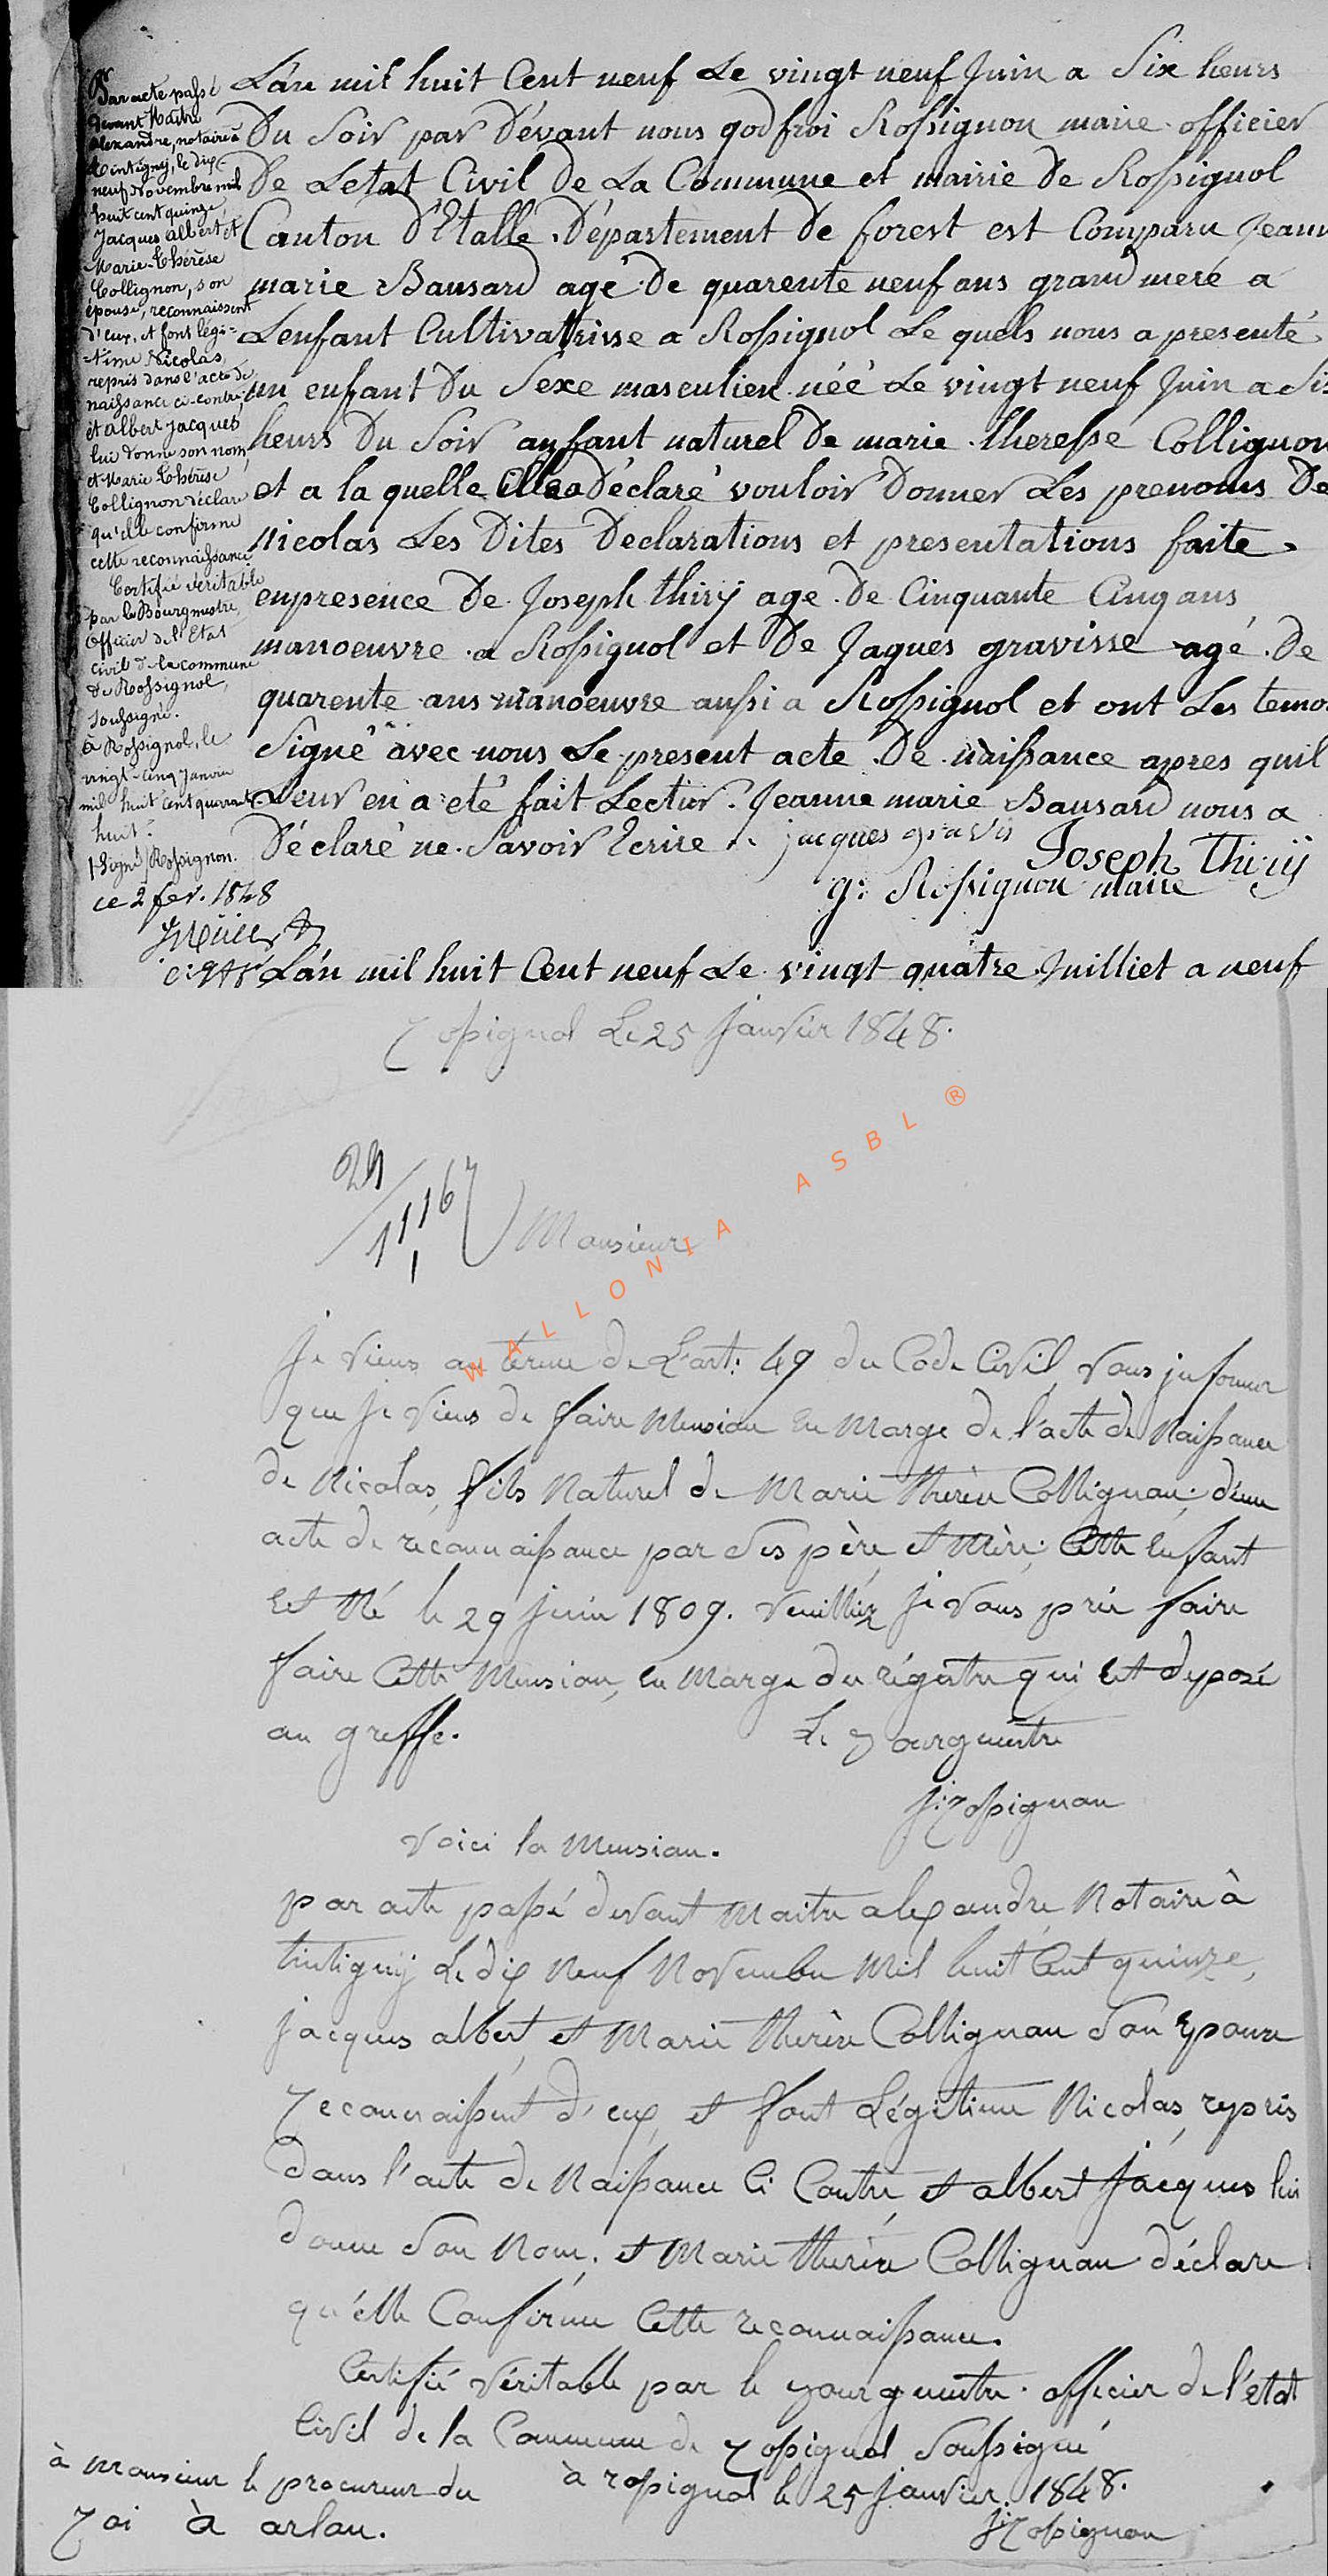 Par acte passé
devant Maître
Alexandre, notaire à
Tintigny, le dix-
neuf Novembre mil
huit cent quinze,
Jacques Albert et
Marie-Thérèse
Collignon, son
épouse, reconnaissent
d'eux, et font légi=
=time Nicolas,
repris dans l'acte de
naissance ci-contre,
et albert jacques
lui donne son nom,
et Marie Thérèse
Collignon déclare
qu'elle confirme
cette reconnaissance.
Certifié véritable
par le Bourgmestre,
officier de l'Etat
civil de la commune
de Rossignol,
soussigné.
à Rossignol, le
vingt-cinq Janvier
mil huit cent quarante
huit.
(Signé) Rossignon.
ce 2 fev. 1848
L'an mil huit Cent neuf Le vingt neuf Juin a Six heurs
Du Soir par Dévant nous godfroi Rossignon maire officier
De Letat Civil de La Commune et mairie De Rossignol
Canton d'Etalle Département De forest est Comparu Jeanne
marie Bansard agé De quarente neuf ans grand mere a
Lenfant Cultivatrisse a Rossignol Le quels nous a presenté
un enfant Du Sexe masculien néé Le vingt neuf Juin a Six
heurs Du Soir anfant naturel De marie theresse Collignon
et a la quelle Elle a Déclaré vouloir Donner Les prenoms De
nicolas Les Dites Declarations et presentations faite
enpresence De Joseph thiry age De Cinquante Cinq ans
manoeuvre a Rossignol et De Jaques gravisse agé De
quarente ans manoeuvre aussi a Rossignol et ont Les temo
Signé avec nous Le present acte De naissance apres quil
Leur en a eté fait Lectur. Jeanne marie Bansard nous a
Déclaré ne Savoir Ecrire jacques gravis
Joseph Thiry
g: Rossignon maire
L'an mil huit Cent neuf Le vingt quatre Juilliet a neuf
Rossignol Le 25 Janvier 1848.
Monsieur
WALLONIA ASBL ®
Je viens au terme de L'art: 49 du Code Civil, vous jnformer
que je viens de faire Mension en Marge de l'acte de Naissance
de Nicolas, fils Naturel de Marie thérèse Collignon; d'une
acte de réconnaissance par ses père et Mère; Cette Enfant
Est Né le 29 Juin 1809. veuilliez je vous prie faire
faire Cette Mension, en Marge du régistre qui Est déposé
au greffe.
Le Bourgmestre
J: Rossignon
voici la Mension.
par acte passé devant Maitre alexandre, Notaire à
tintigny Le dix Neuf Novembre Mil huit Cent quinze,
jacques albert, et Marie thérèse Collignon Son Epouse
Reconnaissent d'eux, et font Légitime Nicolas, repris
dans l'acte de Naissance Ci Contre, et albert Jacques lui
donne Son Nom, et Marie thérèse Collignon déclare
qu'élle Confirme Cette reconnaissance.
Certifié véritable par le Bourgmestre officier de l'état
Civil de la Commune de Rossignol Soussigné
à rossignol le 25 janvier 1848.
J: Rossignon
à Monsieur le procureur du
Roi à arlon.